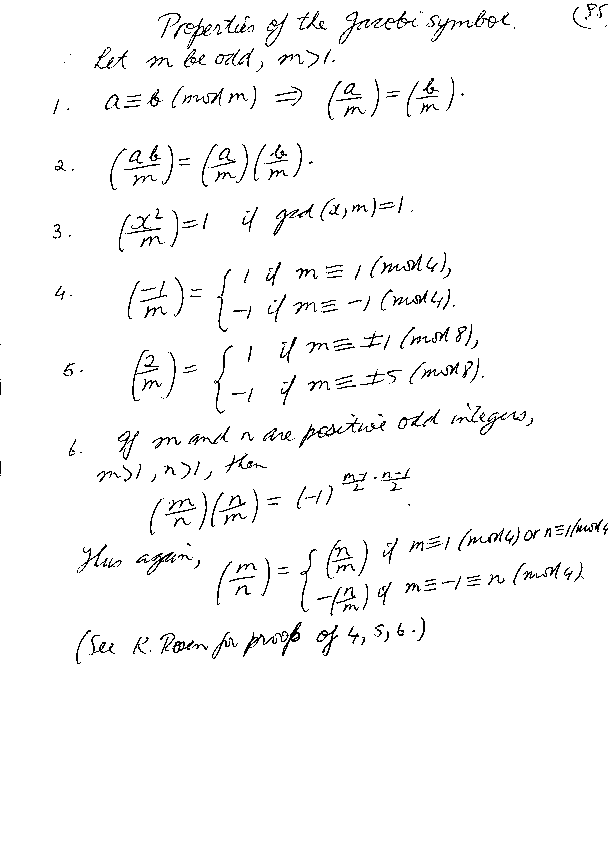 Properties of the Jacobi symbol. (85
Let m be odd, m>1.
1. a≡b (mod m) ⇒ (a/m)=(b/m).
2. (ab/m)=(a/m)(b/m).
3. (x²/m)=1 if gcd(x,m)=1.
4. (-1/m)= { 1 if m≡1 (mod 4),
-1 if m≡-1 (mod 4).
5. (2/m)= { 1 if m≡±1 (mod 8),
-1 if m≡±5 (mod 8).
6. If m and n are positive odd integers,
m>1, n>1, then
(m/n)(n/m)=(-1)^{(m-1)/2 · (n-1)/2}.
Thus again, (m/n)= { (n/m) if m≡1 (mod 4) or n≡1 (mod 4
-(n/m) if m≡-1≡n (mod 4).
(See K. Rosen for proofs of 4, 5, 6.)